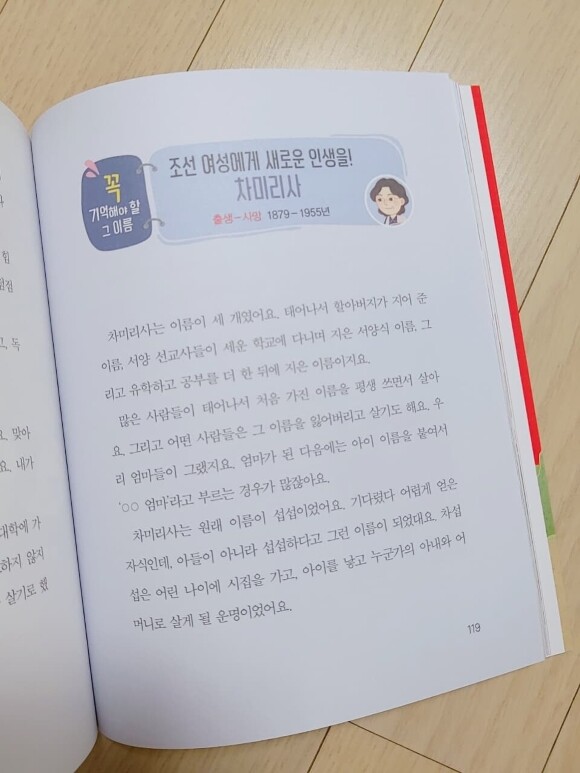 힘
점질
, 독
, 맞아
요. 내가
대학에 가
하지 않지
살기로 했
꼭
기억해야 할
그 이름
조선 여성에게 새로운 인생을!
차미리사
출생-사망 1879-1955년
차미리사는 이름이 세 개였어요. 태어나서 할아버지가 지어 준
이름, 서양 선교사들이 세운 학교에 다니며 지은 서양식 이름, 그
리고 유학하고 공부를 더 한 뒤에 지은 이름이지요.
많은 사람들이 태어나서 처음 가진 이름을 평생 쓰면서 살아
요. 그리고 어떤 사람들은 그 이름을 잃어버리고 살기도 해요. 우
리 엄마들이 그랬지요. 엄마가 된 다음에는 아이 이름을 붙여서
'○○ 엄마'라고 부르는 경우가 많잖아요.
차미리사는 원래 이름이 섭섭이었어요. 기다렸다 어렵게 얻은
자식인데, 아들이 아니라 섭섭하다고 그런 이름이 되었대요. 차섭
섭은 어린 나이에 시집을 가고, 아이를 낳고 누군가의 아내와 어
머니로 살게 될 운명이었어요.
119